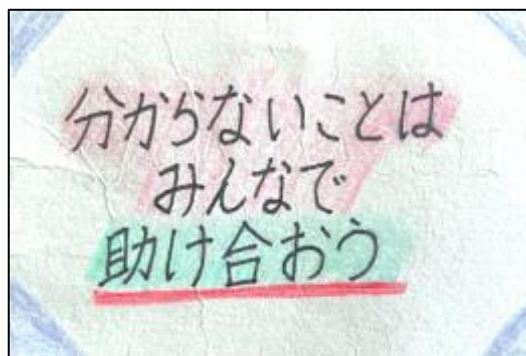 分からないことは
みんなで
助け合おう